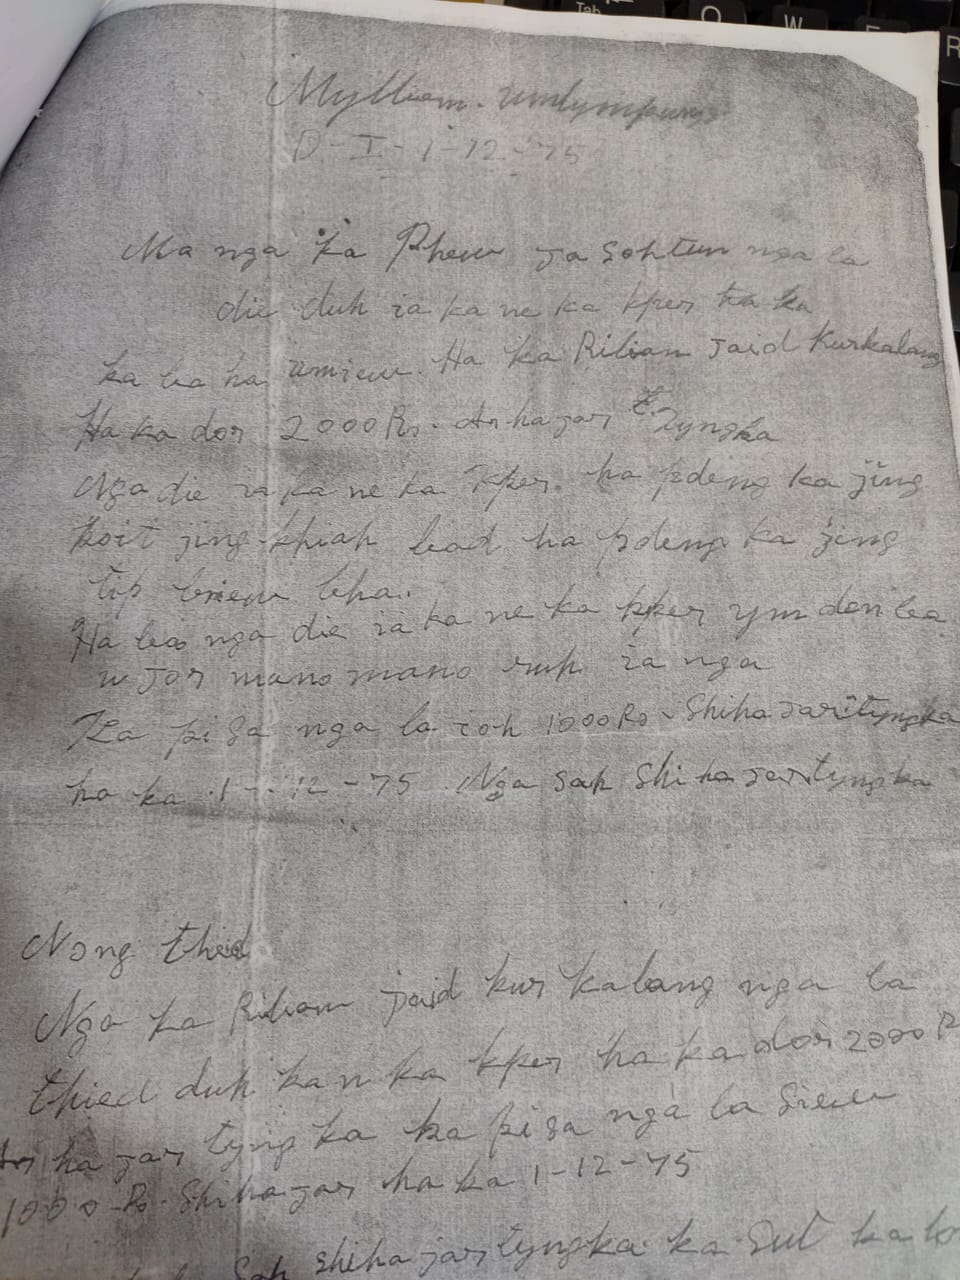 Mylliem. Umlympung
D-I-1-12-75
Ma nga ka Phew Ja Sohtun nga la
die duh ia ka ne ka kper ha ka
ka ba ha umiew. Ha ka Rilian Jaid Kurkalang
Ha ka dor 2000 Rs. Ar hajar tyngka
Nga die ia ka ne ka kper. ha pdeng ka jing
koit jing-khiah bad ha pdeng ka jing
tip briew bha.
Ha ba nga die ia ka ne ka kper ym don ba
u Jor mano mano ruh ia nga
Ka pisa nga la ioh 1000 Rs - Shihajar tyngka
ha ka 1-12-75 Nga sah Shihajar tyngka
Nong thied
Nga ka Rilian jaid kur kalang nga la
thied duh ka n ka kper ha ka dor 2000 R
Ar ha jar tyngka ka pisa nga la Siew
1000-Rs. Shihajar ha ka 1-12-75
Sah shihajar tyngka ka Sut ka